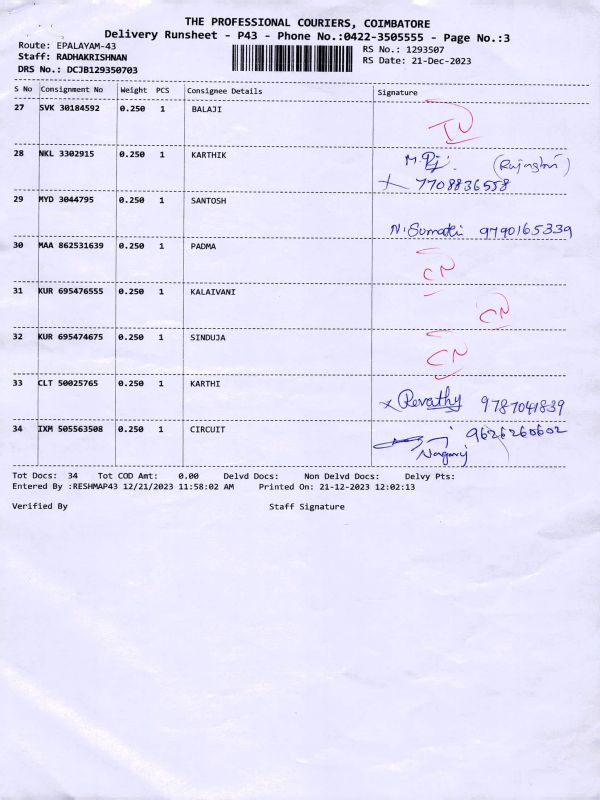 THE PROFESSIONAL COURIERS, COIMBATORE
Delivery Runsheet - P43 - Phone No.:0422-3505555 - Page No.:3
Route: EPALAYAM-43 RS No.: 1293507
Staff: RADHAKRISHNAN RS Date: 21-Dec-2023
DRS No.: DCJB129350703
S No Consignment No Weight PCS Consignee Details Signature
27 SVK 30184592 0.250 1 BALAJI
28 NKL 3302915 0.250 1 KARTHIK
7708836558
29 MYD 3044795 0.250 1 SANTOSH
N. Sumathi 9790165339
30 MAA 862531639 0.250 1 PADMA
CN
31 KUR 695476555 0.250 1 KALAIVANI
CN
32 KUR 695474675 0.250 1 SINDUJA
CN
33 CLT 50025765 0.250 1 KARTHI
x Revathy 9787041839
34 IXM 505563508 0.250 1 CIRCUIT
9626260602
Nagaraj
Tot Docs: 34 Tot COD Amt: 0.00 Delvd Docs: Non Delvd Docs: Delvy Pts:
Entered By :RESHMAP43 12/21/2023 11:58:02 AM Printed On: 21-12-2023 12:02:13
Verified By Staff Signature